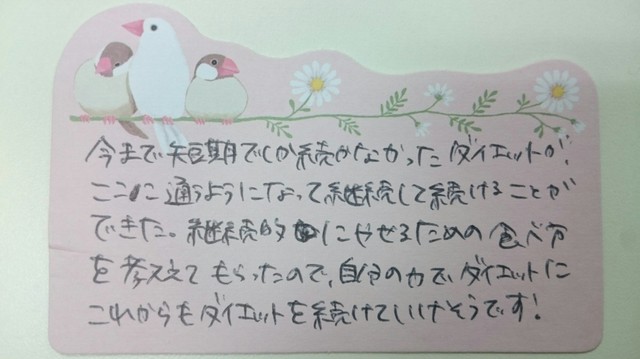 今まで短期でしか続かなかったダイエットが、
ここに通うようになって継続して続けることが
できた。継続的にやせるための食べ方
を考えてもらったので、自分の力で、ダイエットに
これからもダイエットを続けていけそうです!